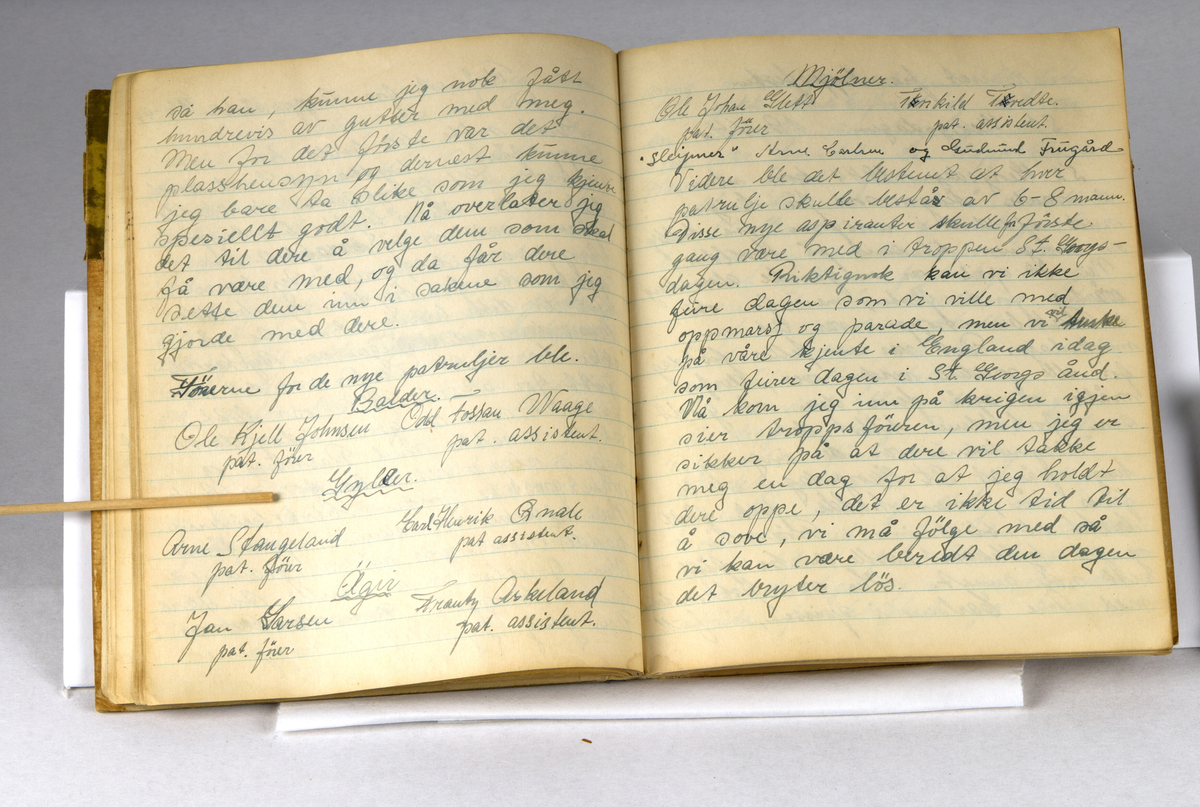 så han, kunne jeg nok fått
hundrevis av gutter med meg.
Men for det förste var det
plasshensyn og dernest kunne
jeg bare ta slike som jeg kjente
spesiellt godt. Nå overlater jeg
det til dere å velge dem som skal
få være med, og da får dere
sette dem inn i sakene som jeg
gjorde med dere.
Förerne for de nye patruljer ble.
Balder.
Ole Kjell Johnsen Odd Fossan Waage
pat. förer pat. assistent.
Gylder.
Arne Stangeland Carl Henrik
pat. förer pat assistent.
Ägir
Jan Larsen Askeland
pat. förer pat. assistent.
Mjölner.
Ole Johan Tredte.
pat. förer pat. assistent.
"Sleipner" Arne og Gudmund Frugård
Videre ble det bestemt at hver
patrulje skulle bestå av 6-8 mann.
Disse nye aspiranter skulle for förste
gang være med i troppen St. Georgs-
dagen. Riktignok kan vi ikke
feire dagen som vi ville med
oppmarsj og parade, men vi skal huske
på våre kjente i England idag
som feirer dagen i St. Georgs ånd.
Nå kom jeg inn på krigen igjen
sier troppsföreren, men jeg er
sikker på at dere vil takke
meg en dag for at jeg holdt
dere oppe, det er ikke tid til
å sove, vi må fölge med så
vi kan være beredt den dagen
det bryter lös.